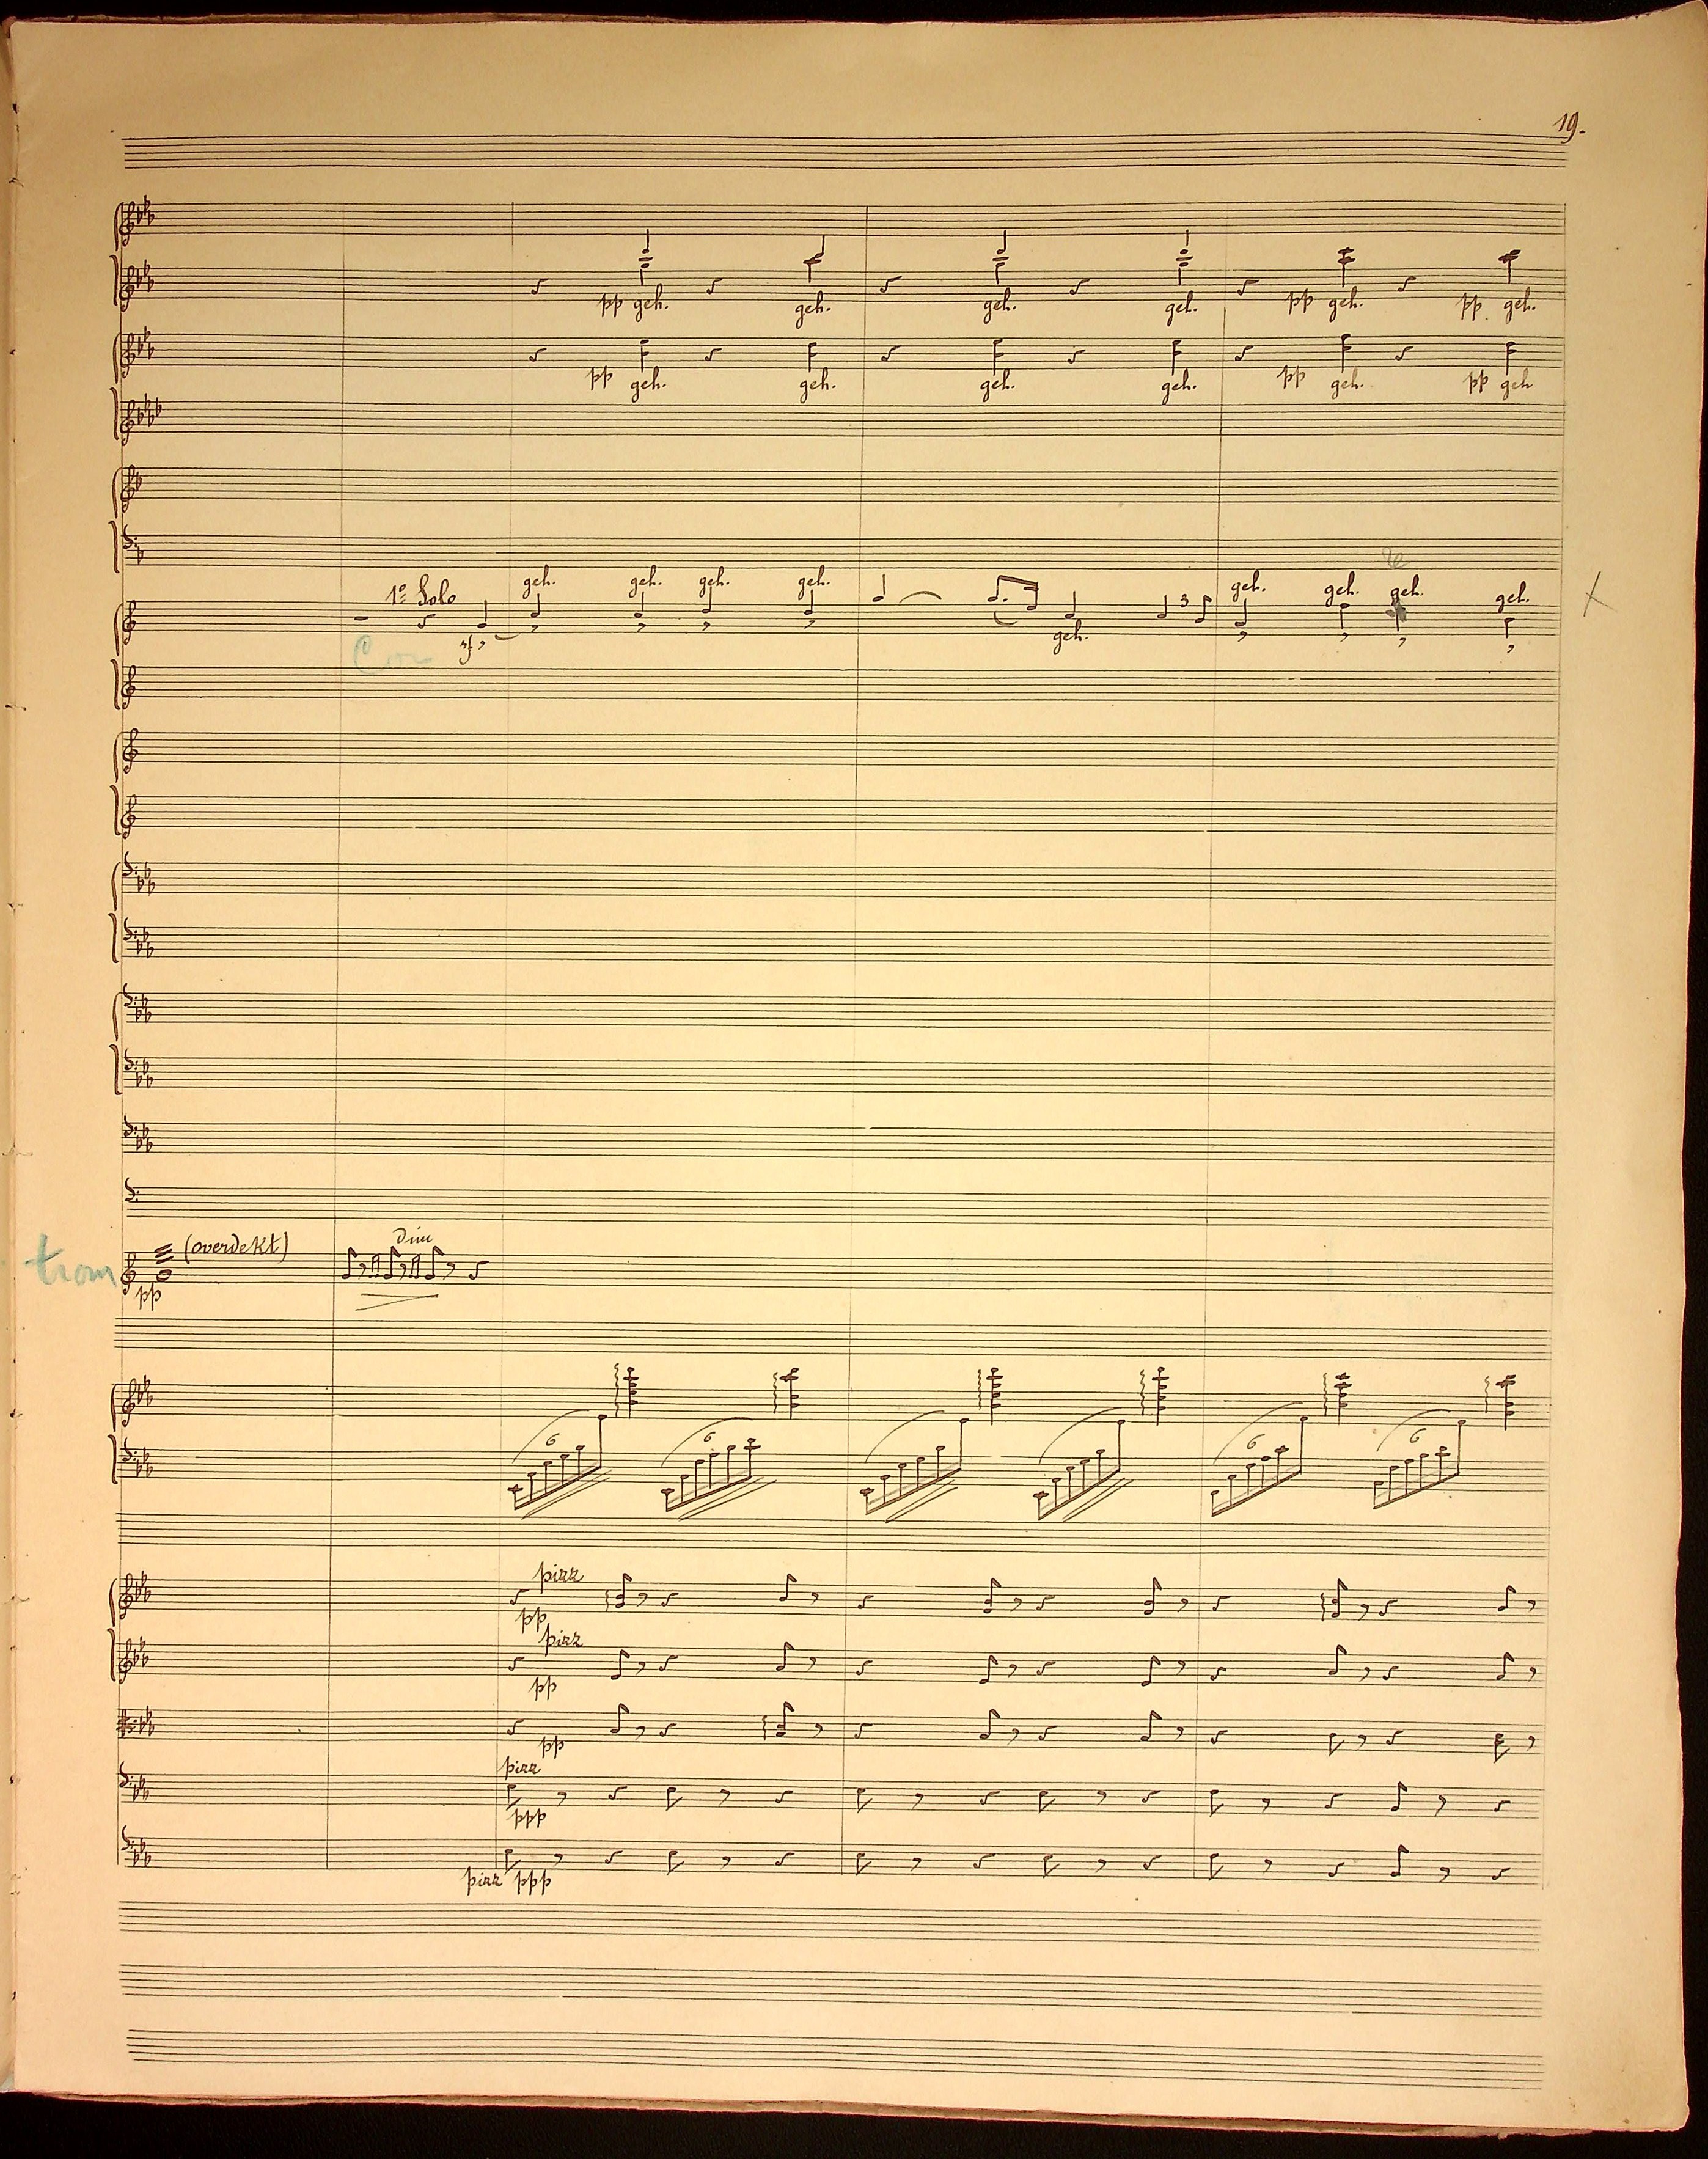 19.
pp geh. geh. geh. geh. pp geh. pp. geh.
pp geh. geh. geh. geh. pp geh. pp geh
1º Solo geh. geh. geh. geh. geh. geh. geh. geh.
sf geh. 3
trom (overdekt) Dim
pp
6 6 6 6
pizz
pp
pizz
pp
pp
pizz
ppp
pizz ppp